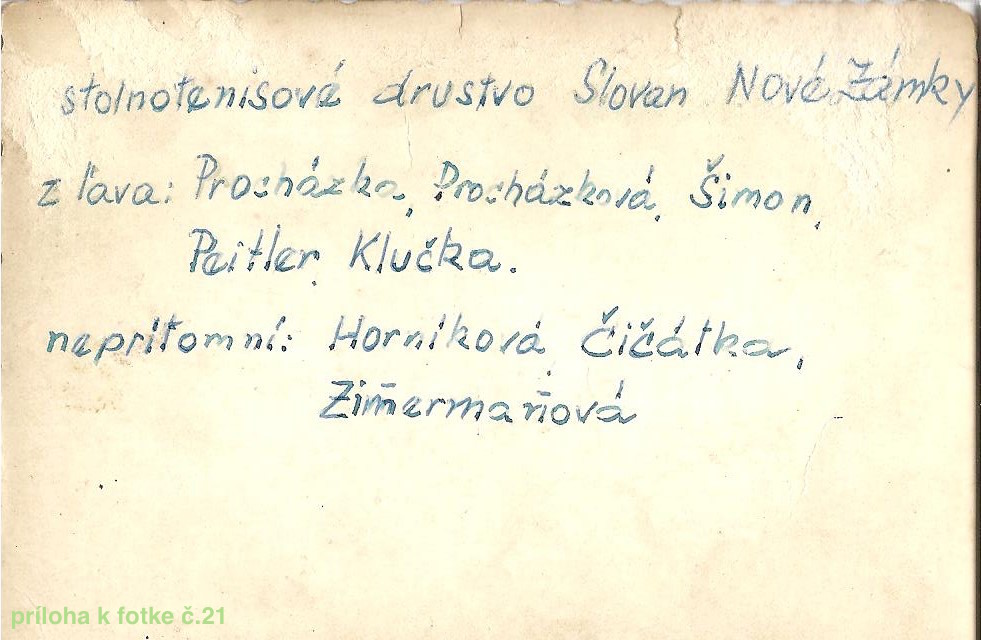 stolnotenisové drustvo Slovan Nové Zámky
z ľava: Procházka, Procházková, Šimon,
Peitler, Klučka.
neprítomní: Horníková, Čičátka,
Zim̄erman̄ová
príloha k fotke č.21